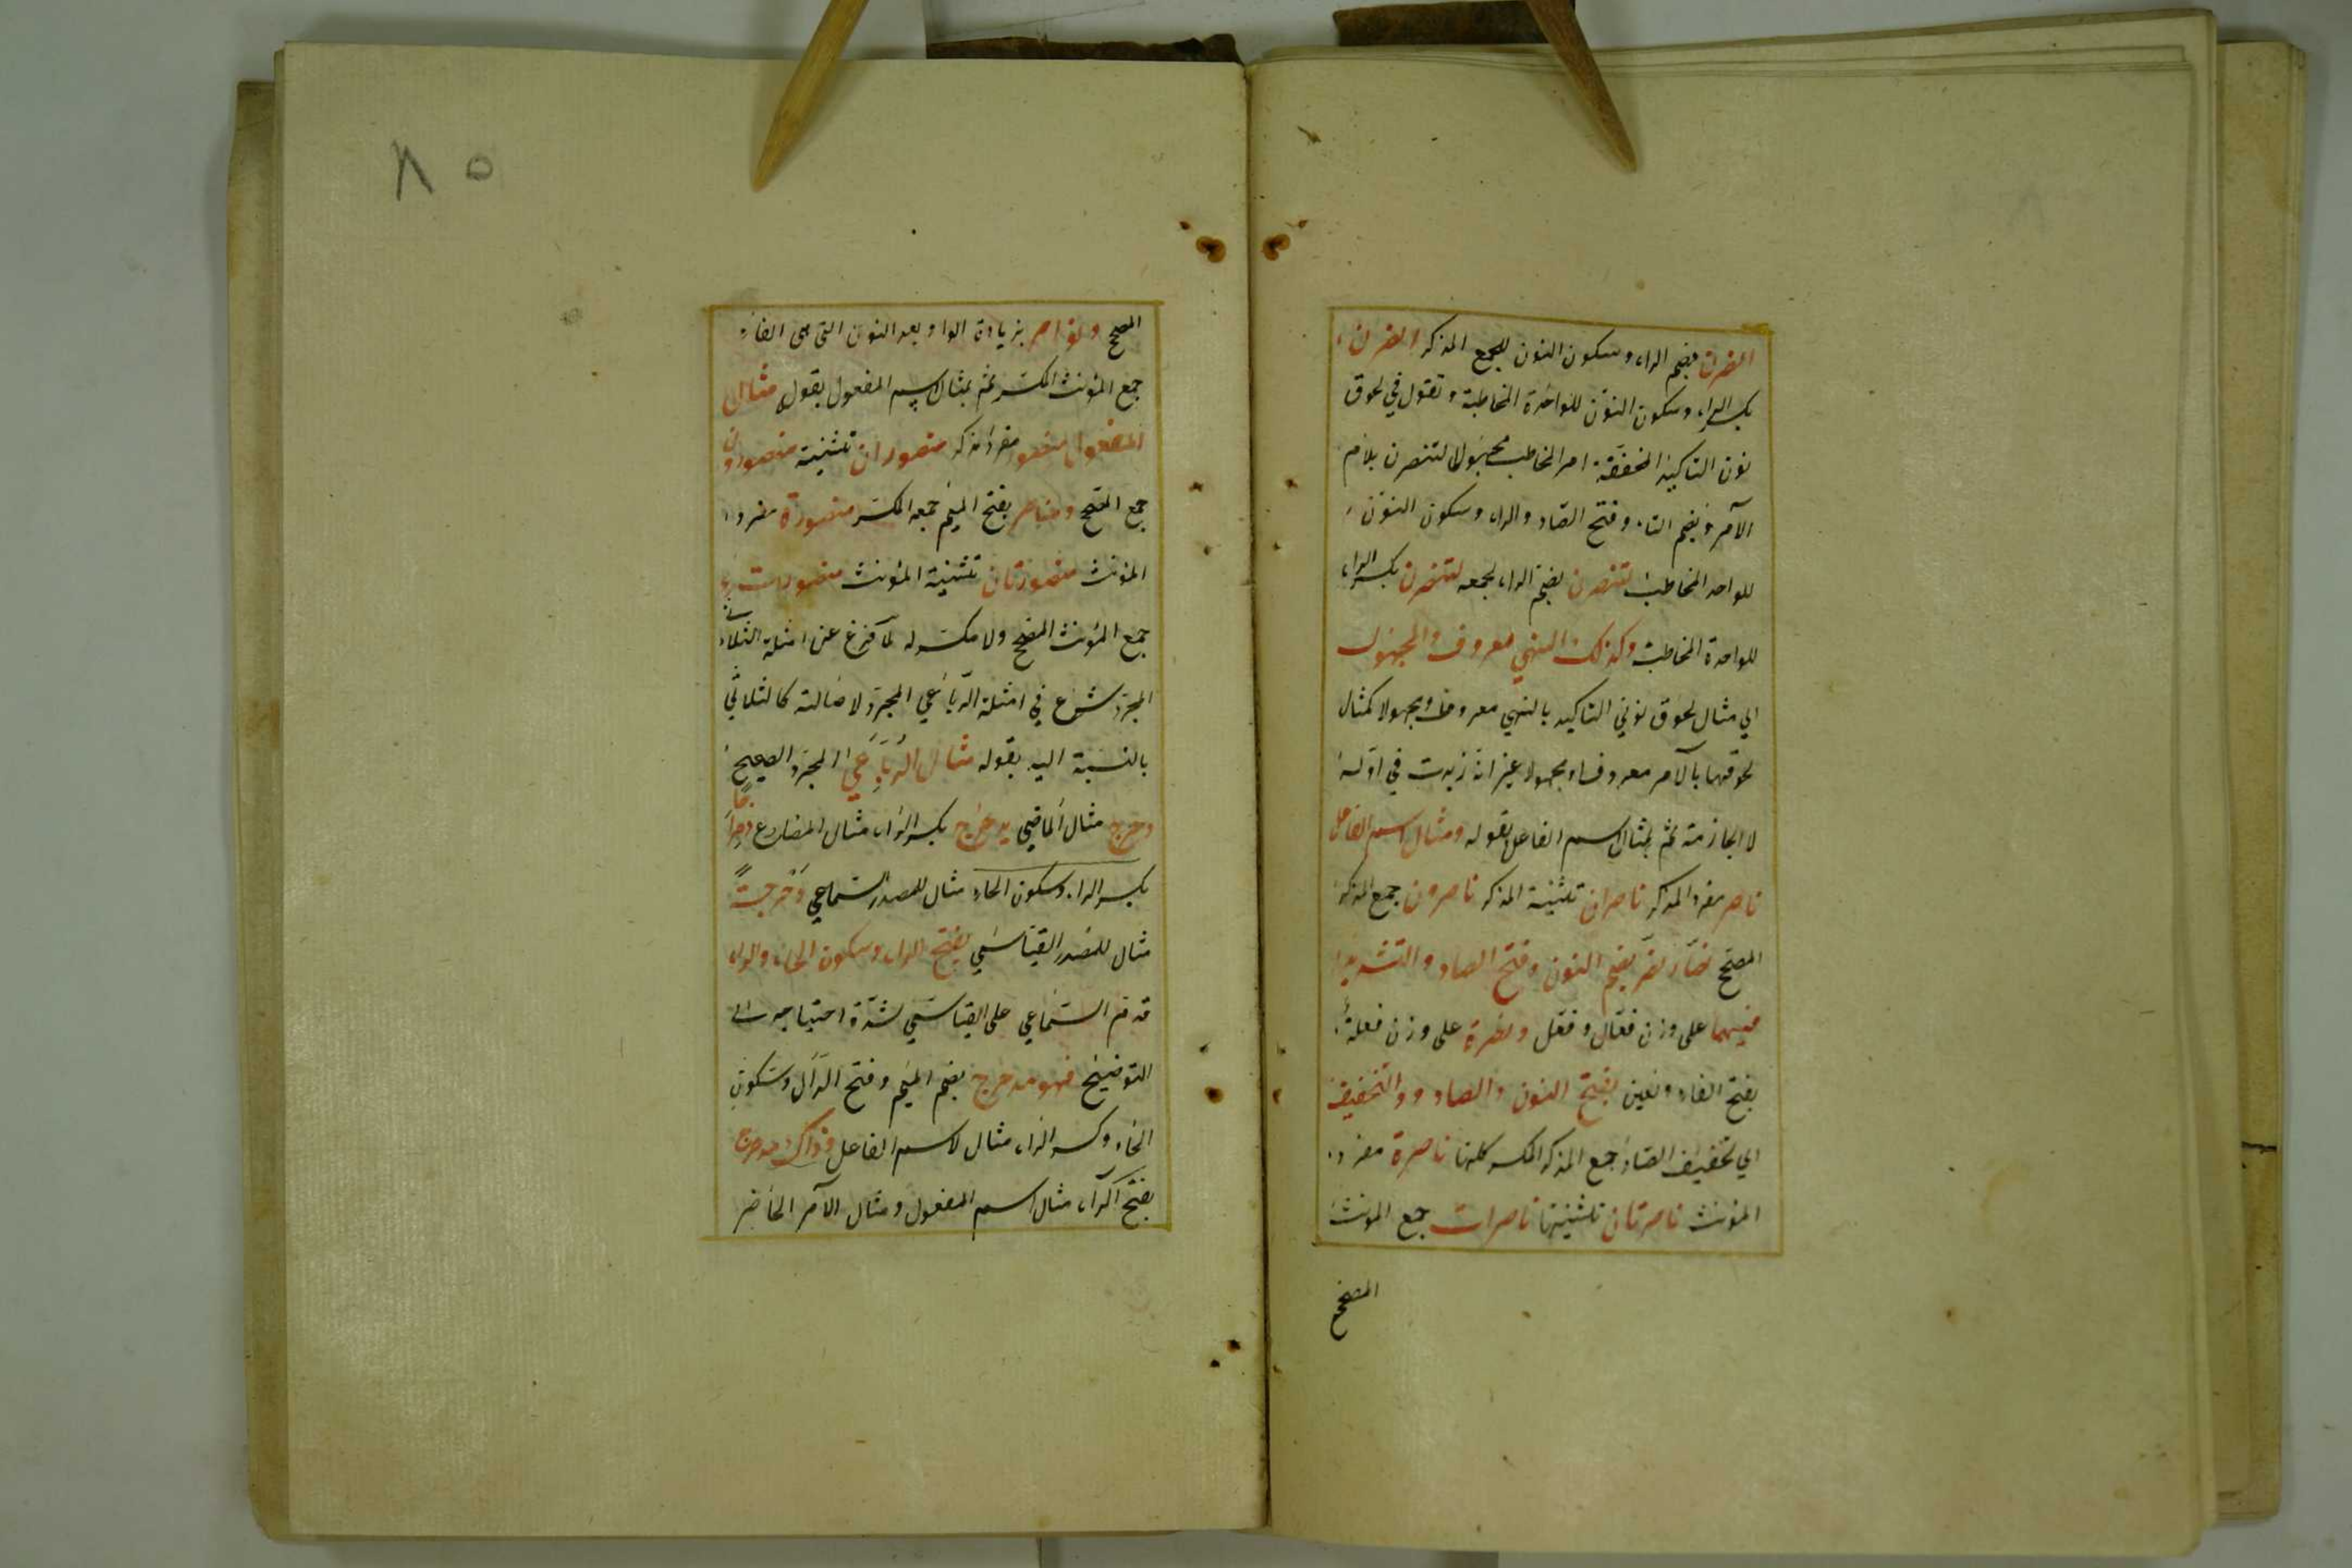 انصرن بضم الراء وسكون النون للجمع المذكر انصرن
بكسر الراء وسكون النون للواحدة المخاطبة وتقول في لحوق
نون التاكيد المخففة امر المخاطب مجهولا لتنصرن بلام
الآمر وبضم التاء وفتح الصاد والراء وسكون النون
للواحد المخاطب لتنصرن بضم الراء لجمعه لتنصرن بكسر الراء
للواحدة المخاطبة وكذلك النهي معروف والمجهول
اي مثال لحوق نوني التاكيد بالنهي معروفا ومجهولا كمثال
لحوقهما بالآمر معروفا ومجهولا غير ان زيدت في اوله
لا الجازمة ثم بمثال اسم الفاعل بقوله ومثال اسم الفاعل
ناصر مفرد المذكر ناصران تثنية المذكر ناصرون جمع المذكر
المصحح نصار نصر بضم النون وفتح الصاد والتشديد
فيهما على وزن فعال وفعل ونصرة على وزن فعلة
بفتح الفاء والعين بفتح النون والصاد ووالتخفيف
اي تخفيف الصاد جمع المذكر المكسر كلها ناصرة مفرد
المؤنث ناصرتان تثنيتها ناصرات جمع المونث
المصحح
٨٥
المصحح ونواصر بزيادة الواو بعد النون التي هي الفاء
جمع المؤنث المكسر ثم بمثال اسم المفعول بقوله مثال
المفعول منصور مفرد مذكر منصوران تثنية منصورون
جمع المصحح ومناصر بفتح الميم جمعه المكسر منصورة مفرد
المؤنث منصورتان تثنية المؤنث منصورات
جمع المؤنث المصحح ولا مكسر له لما فرغ عن امثلة الثلاثي
المجرد شرع في امثلة الرباعي المجرد لاصالته كالثلاثي
بالنسبة اليه بقوله مثال الرباعي المجرد الصحيح
دحرج مثال الماضي يدحرج بكسر الراء مثال المضارع دحراجا
بكسر الراء وسكون الحاء مثال للمصدر السماعي ودحرجة
مثال للمصدر القياسي بفتح الراء وسكون الحاء والدال
قدم السماعي على القياسي لشدة احتياجه الى
التوضيح فهو مدحرج بضم الميم وفتح الدال وسكون
الحاء وكسر الراء مثال لاسم الفاعل وذاك مدحرج
بفتح الراء مثال اسم المفعول ومثال الآمر الحاضر